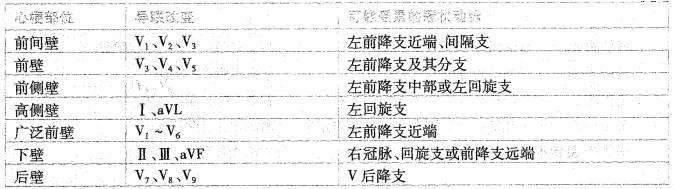 心梗部位 导联改变 可能受累的冠状动脉
前间壁 V₁、V₂、V₃ 左前降支近端、间隔支
前壁 V₃、V₄、V₅ 左前降支及其分支
前侧壁 左前降支中部或左回旋支
高侧壁 Ⅰ、aVL 左回旋支
广泛前壁 V₁~V₆ 左前降支近端
下壁 Ⅱ、Ⅲ、aVF 右冠脉、回旋支或前降支远端
后壁 V₇、V₈、V₉ V后降支